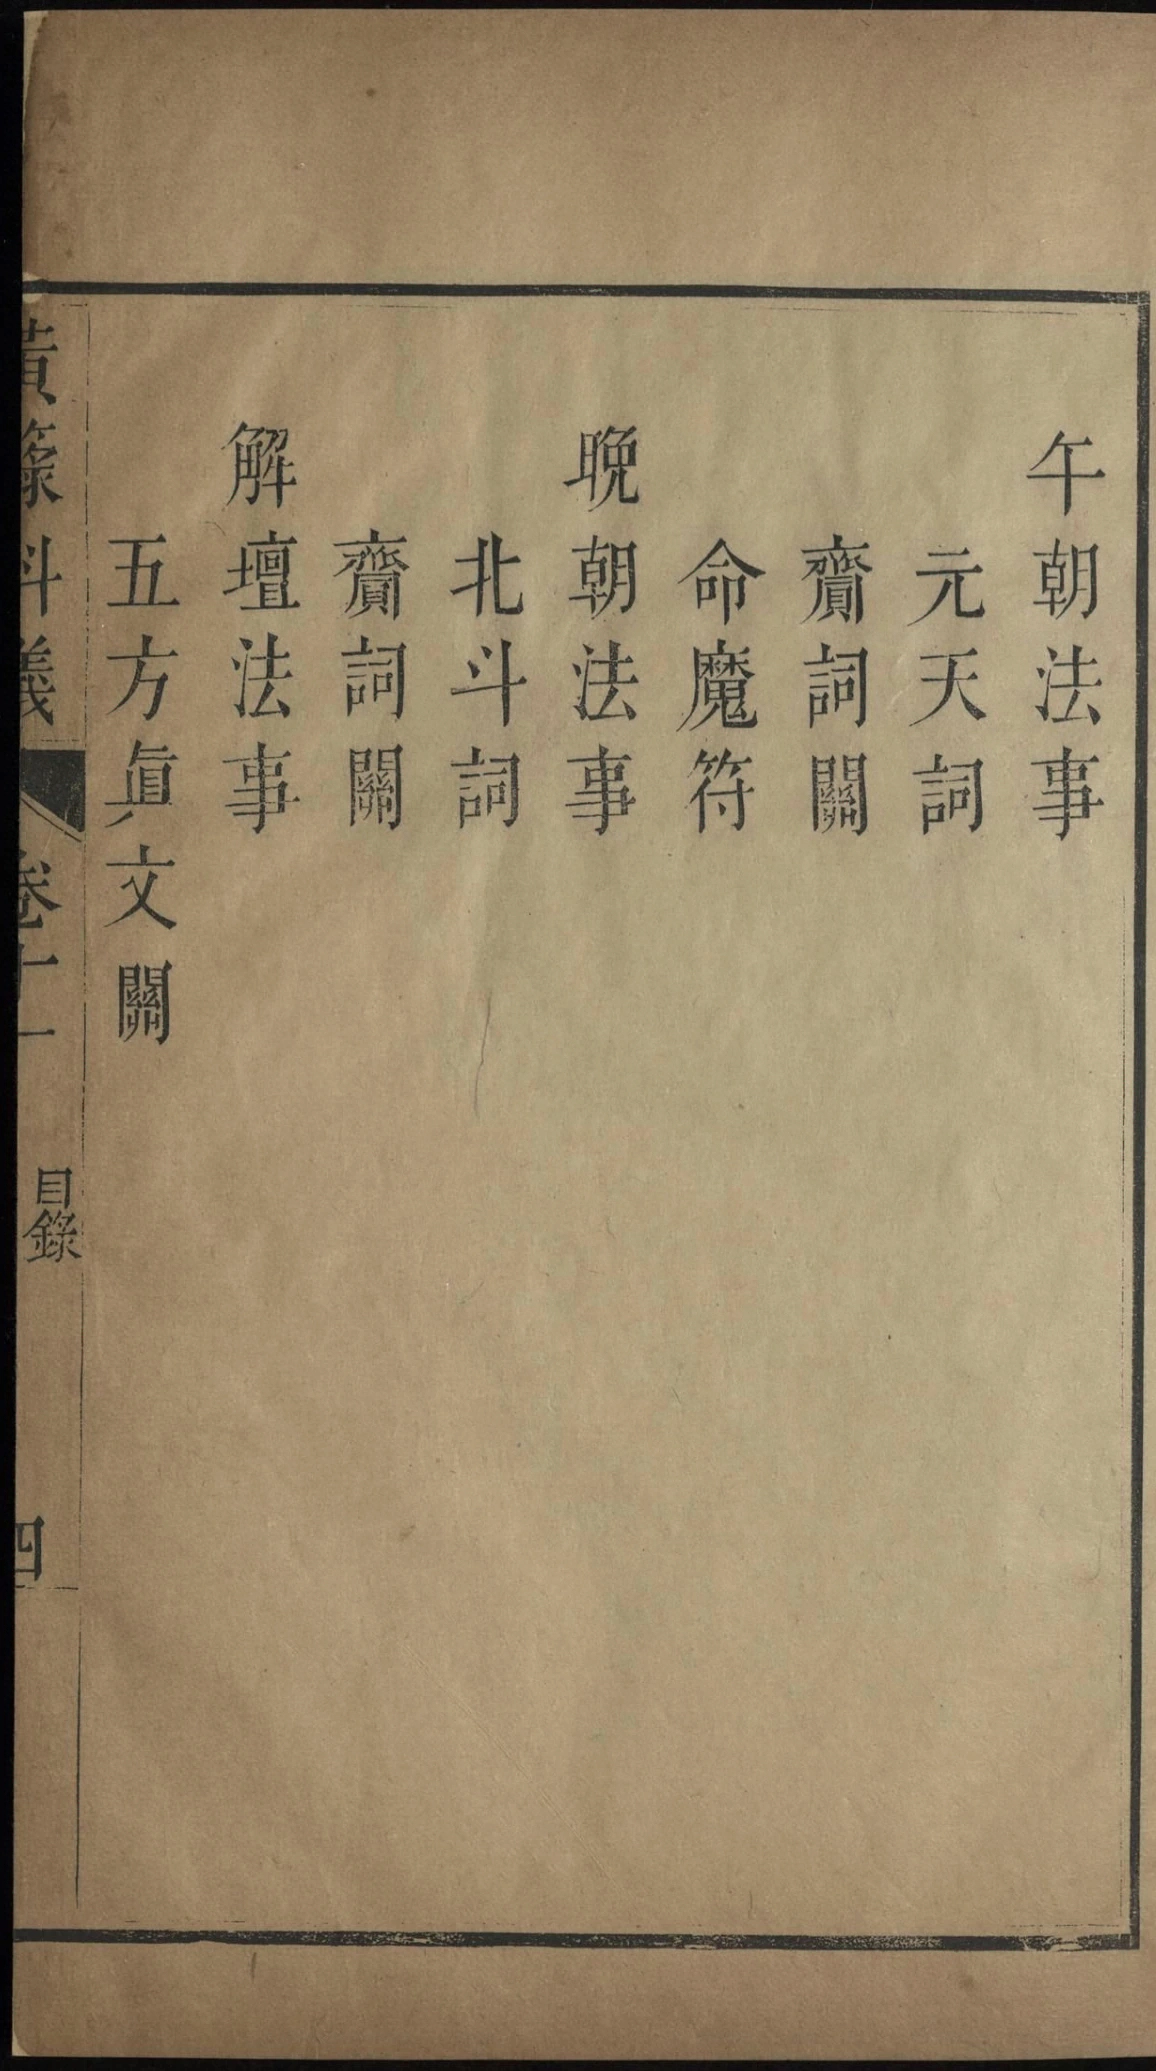 午朝法事
元天詞
齎詞關
命魔符
晚朝法事
北斗詞
齎詞關
解壇法事
五方眞文關
黃籙科儀
卷十一
目錄
四